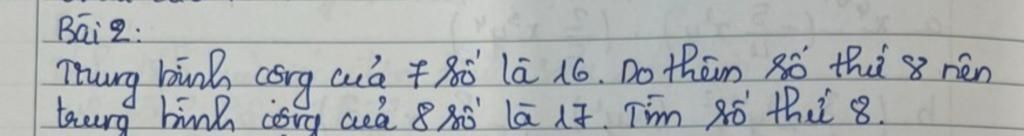 Bài 2:
Trung bình cộng của 7 số là 16. Do thêm số thứ 8 nên
trung bình cộng của 8 số là 17. Tìm số thứ 8.